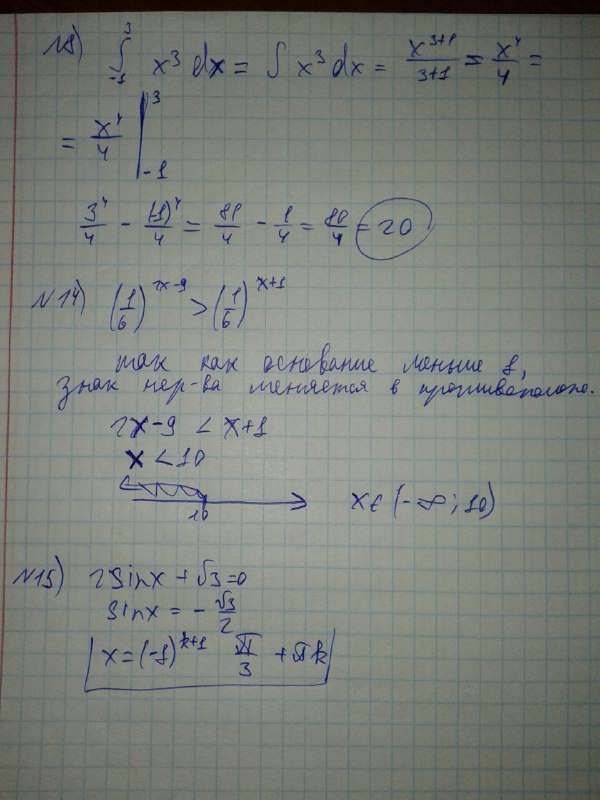 N8) ∫₋₁³ x³ dx = ∫ x³ dx = x³⁺¹/3+1 = x⁴/4 =
= x⁴/4 |₋₁³
3⁴/4 - (-1)⁴/4 = 81/4 - 1/4 = 80/4 = 20
N14) (1/6)^(2x-9) > (1/6)^(x+1)
так как основание меньше 1,
знак нер-ва меняется в противополож.
2x-9 < x+1
x < 10
10
x ∈ (-∞; 10)
N15) 2sinx + √3 = 0
sinx = - √3/2
x = (-1)^(k+1) π/3 + πk